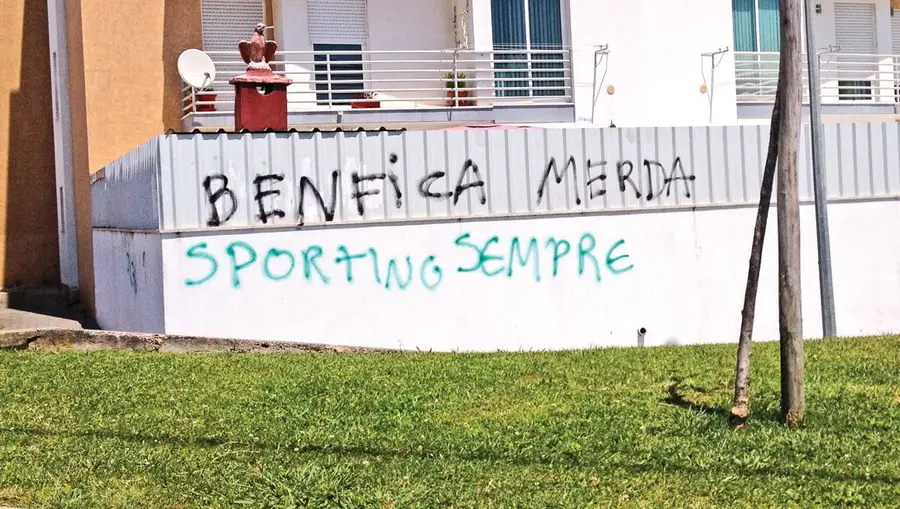 BENFiCA MERDA
SPORTINO SEMPRE